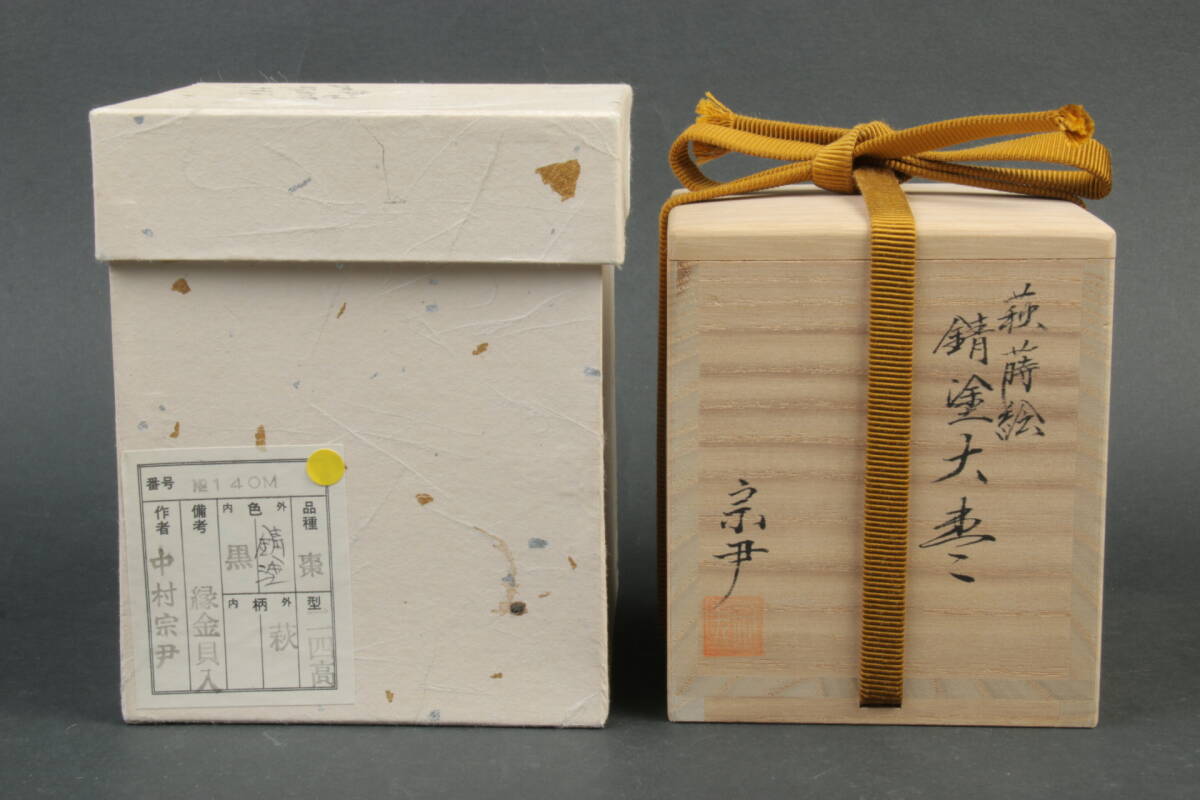 番号 №140M
品種 棗
型 一四高
外 色 内
錆塗 黒
外 柄 内
萩
備考 縁金貝入
作者 中村宗尹
萩蒔絵
錆塗大棗
宗尹